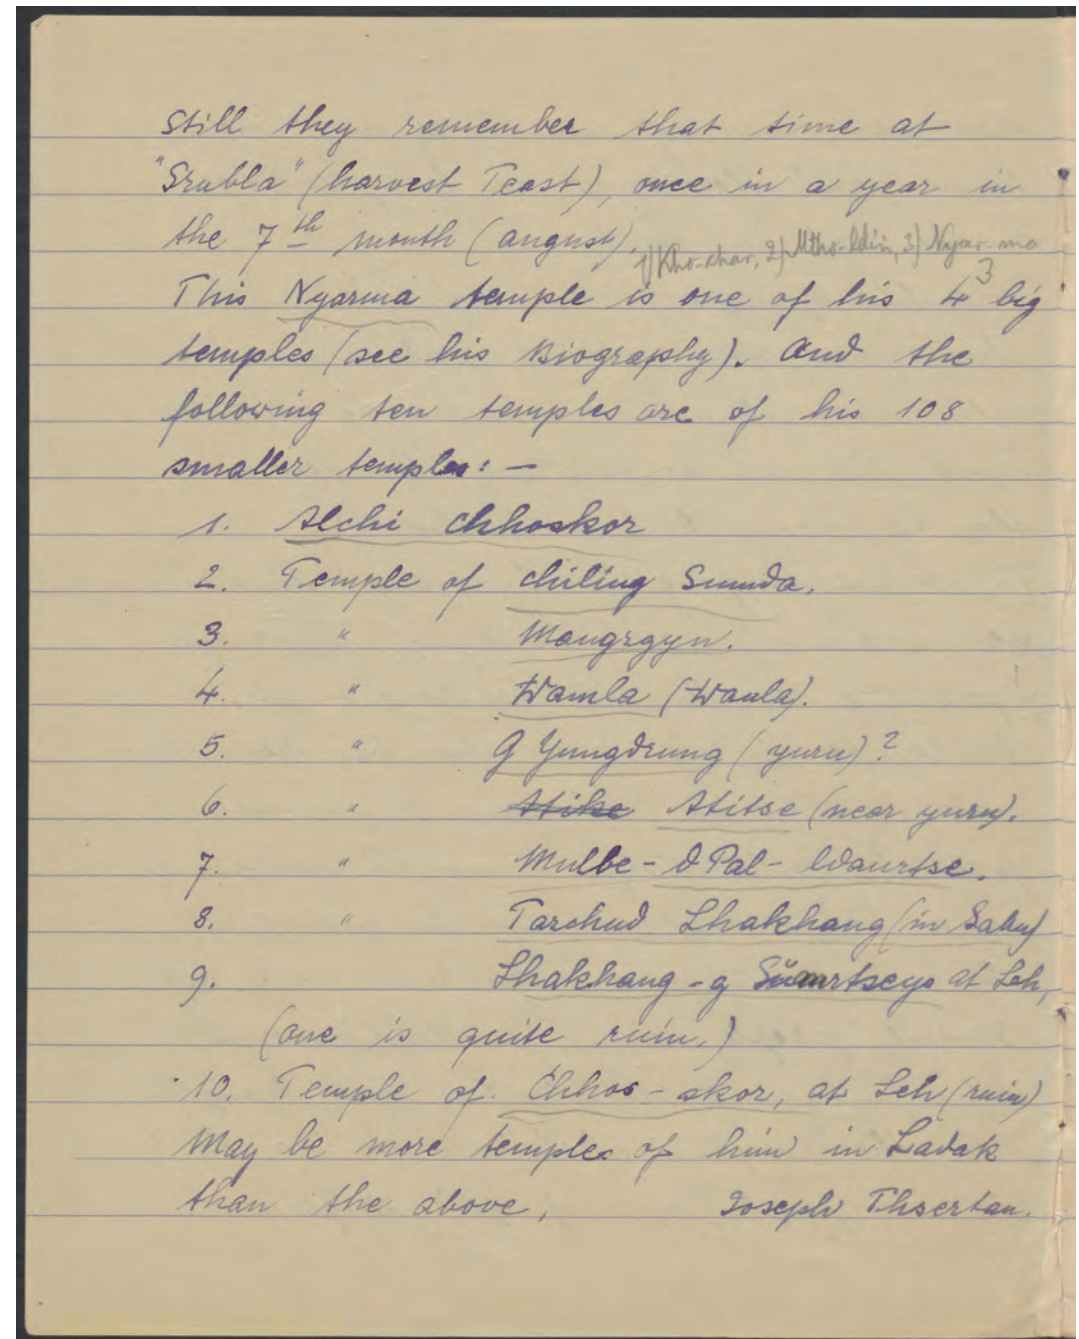 still they remember that time at
"Srubla" (harvest Feast), once in a year in
the 7th month (august).
1) Kho-char, 2) Mtho-ldin, 3) Nyar-ma
3
This Nyarma temple is one of his 4 big
temples (see his Biography). And the
following ten temples are of his 108
smaller temples: —
1. Alchi Chhoskor
2. Temple of chiling Sumda.
3. " Mangrgyn.
4. " Wamla (Wanla).
5. " G Yungdrung (yuru)?
6. " Atitse (near yuru).
7. " Mulbe - d Pal - ldanrtse.
8. " Tarchud Lhakhang (in Sabu)
9. Lhakhang - g at Leh,
(one is quite ruin,)
10. Temple of Chhos - skor, at Leh (ruin)
May be more temples of him in Ladak
than the above, Joseph Thsertan.